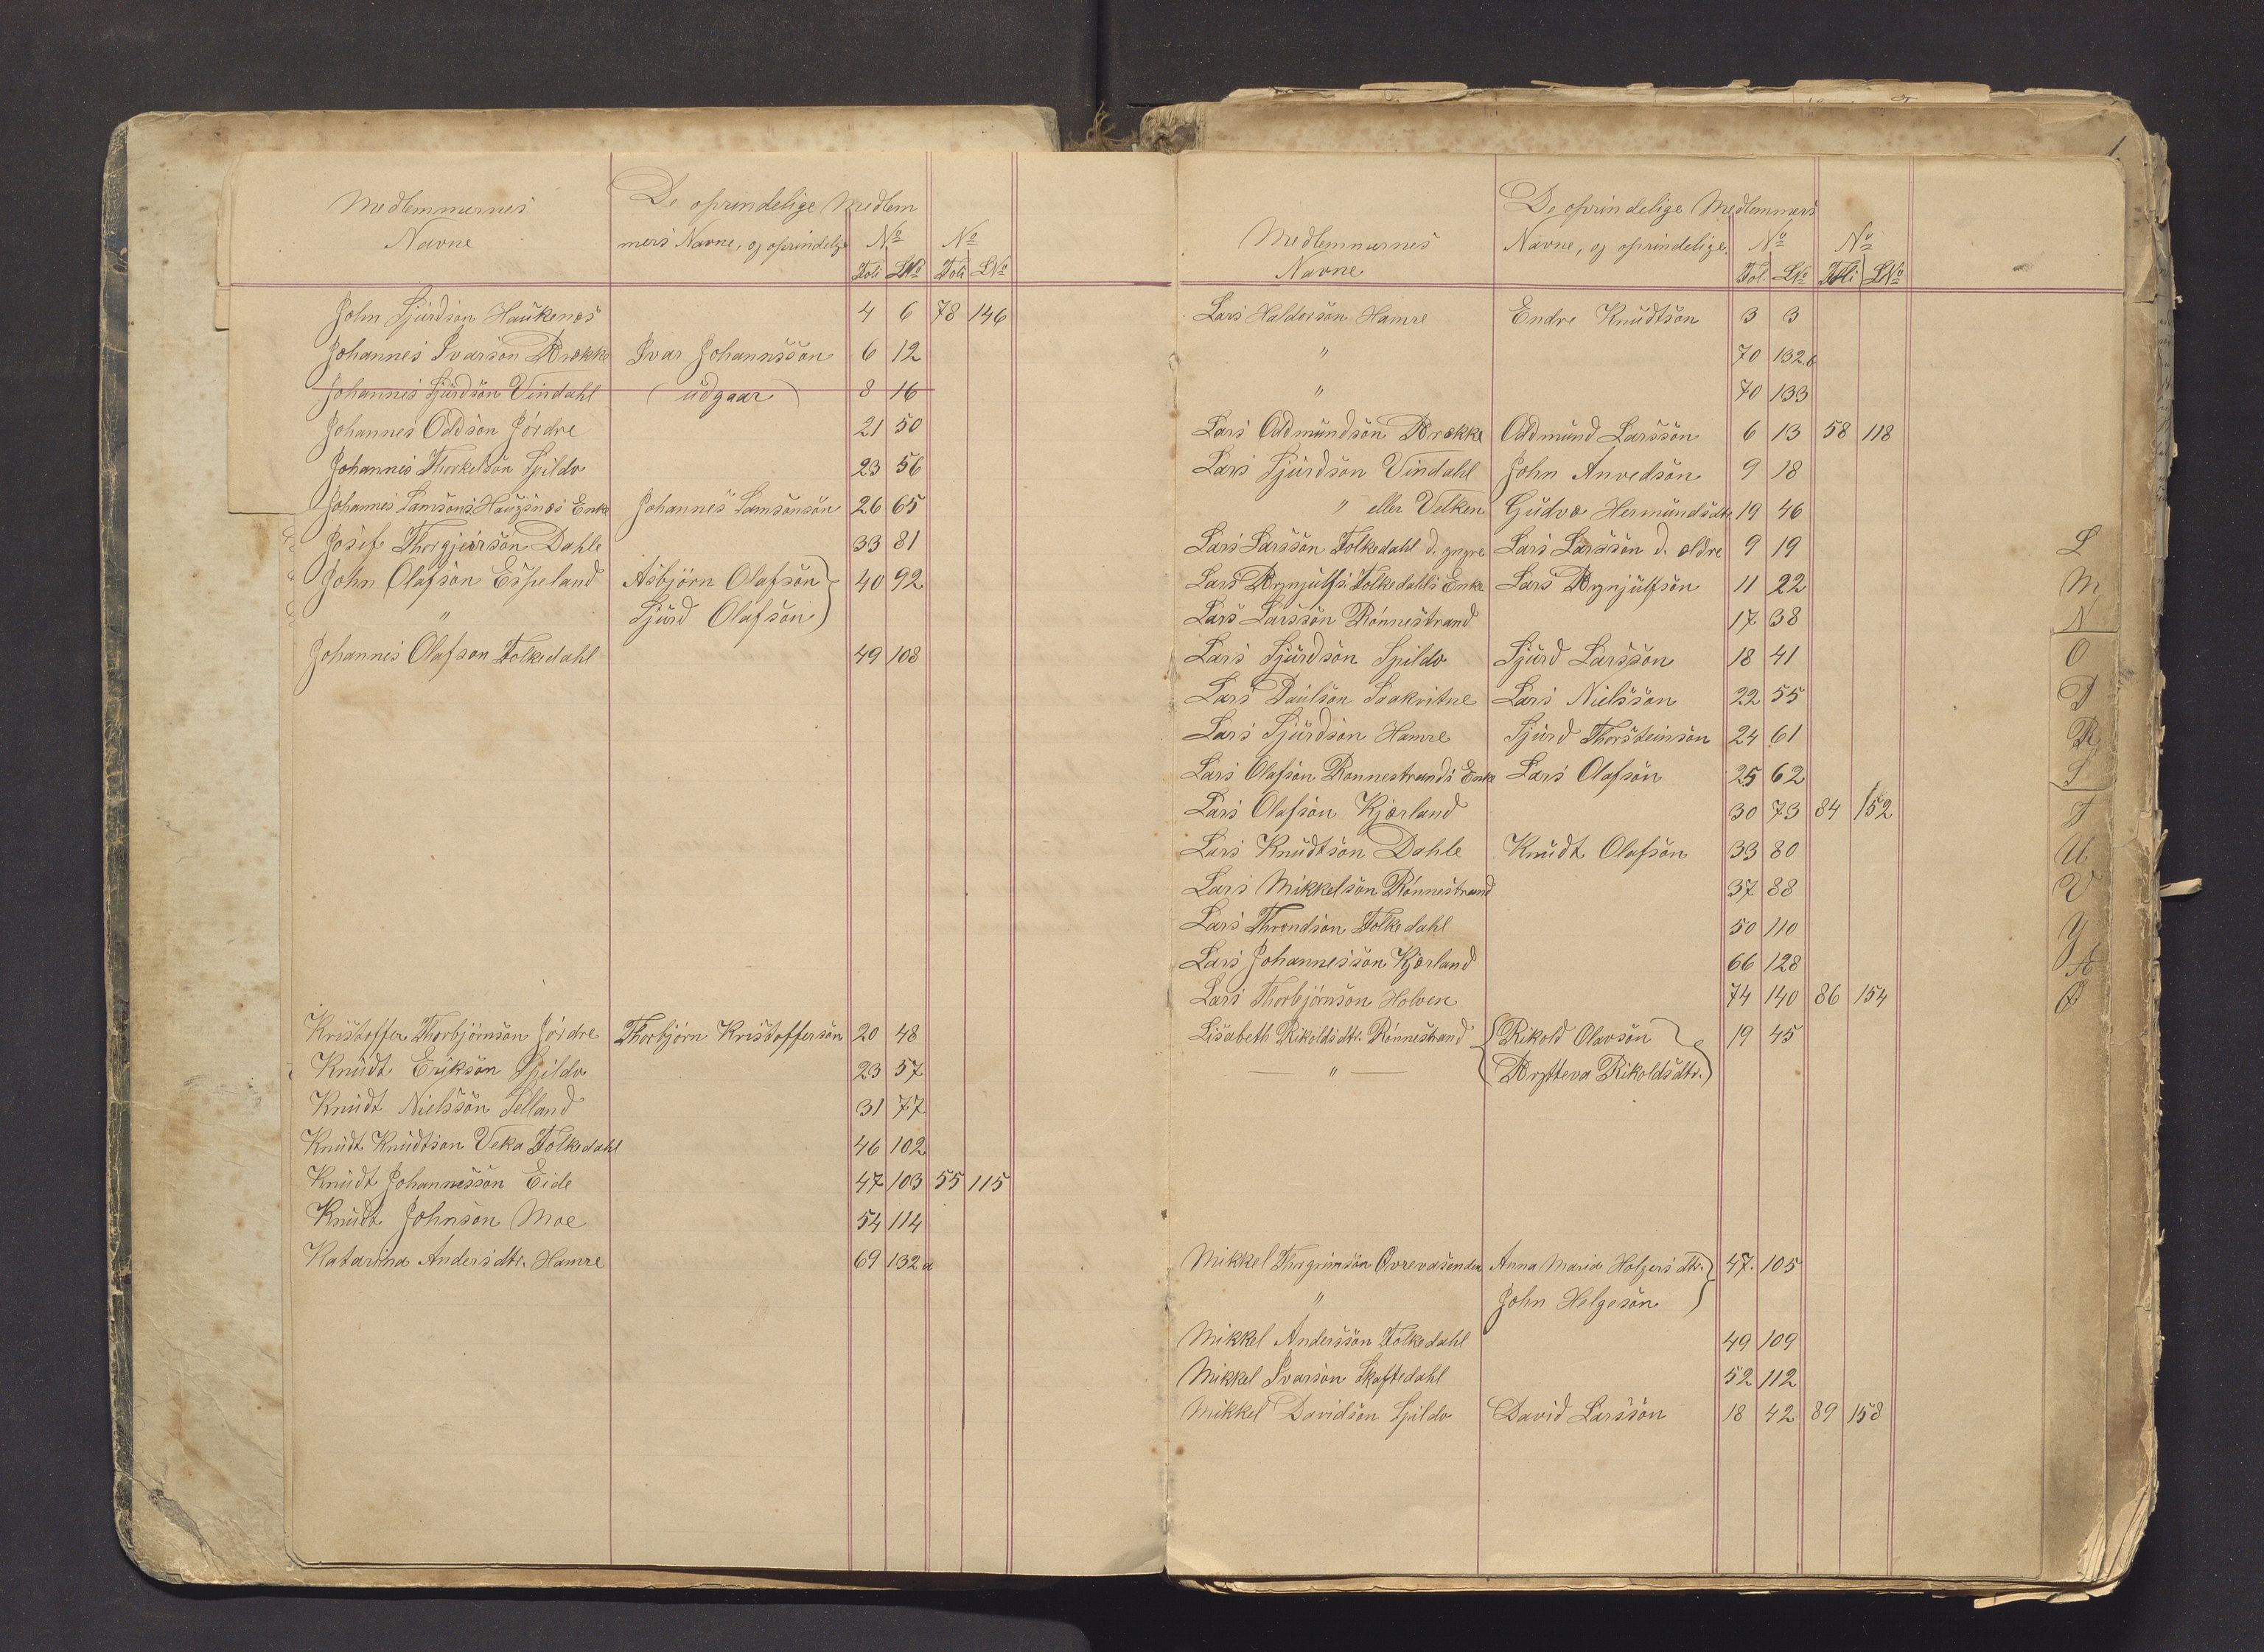 Medlemmernes Navne
De oprindelige Medlem
mers Navne, og oprindelige
No No
Foli LNo Foli LNo
John Sjürdsön Haükenæs 4 6 78 146
Johannes Ivarsön Brække Ivar Johannssön 6 12
Johannes Sjürdsön Vindahl (üdgaar) 8 16
Johannes Oddsön Jördre 21 50
Johannes Thorkelsön Spildo 23 56
Johannes Samsöns Haügsnæs Enke Johannes Samsonsön 26 65
Josef Thorgjeirsön Dahle 33 81
John Olafsön Espeland Asbjörn Olafsön 40 92
" Sjürd Olafsön
Johannes Olafson Folkedahl 49 108
Kristoffer Thorbjörnsön Jördre Thorbjörn Kristoffersön 20 48
Knüdt Eriksön Spildo 23 57
Knüdt Nielssön Selland 31 77
Knüdt Knüdtsön Veka Folkedahl 46 102
Knüdt Johannessön Eide 47 103 55 115
Knüdt Johnsön Moe 54 114
Katarina Andersdtr. Hamre 69 132a
1.
De oprindelige Medlemmers
Medlemmernes Navne, og oprindelige No No
Navne Fol. LNo Foli LNo
Lars Haldorsön Hamre Endre Knüdtsön 3 3
" 70 132.b
" 70 133
Lars Oddmündsön Brække Oddmünd Larssön 6 13 58 118
Lars Sjürdsön Vindahl John Anvedsön 9 18
" eller Velken Güdvø Hermündsdtr 19 46
Lars Larssön Folkedahl d. yngre Lars Larssön d. ældre 9 19
Lars Brynjülfs Folkedahls Enke Lars Brynjülfsön 11 22
Lars Larssön Rönnestrand 17 38
Lars Sjürdsön Spildo Sjürd Larssön 18 41
Lars Paülsön Saakvitne Lars Nielssön 22 55
Lars Sjürdsön Hamre Sjürd Thorsteinsön 24 61
Lars Olafsön Rönnestrands Enke Lars Olafsön 25 62
Lars Olafsön Kjærland 30 73 84 152
Lars Knüdtsön Dahle Knüdt Olafsön 33 80
Lars Mikkelsön Rönnestrand 37 88
Lars Throndsön Folkedahl 50 110
Lars Johannessön Kjærland 66 128
Lars Thorbjörnsön Holven 74 140 86 154
Lisabeth Rikoldsdtr. Rönnestrand Rikold Olavsön 19 45
" Brytteva Rikoldsdtr.
Mikkel Thorgrimsön Övrevasenden Anna Maria Holgersdtr. 47. 105
" John Helgesön
Mikkel Anderssön Folkedahl 49 109
Mikkel Ivarsön Skaftedahl 52 112
Mikkel Davidsön Spildo David Larssön 18 42 89 158
L
M
N
O
P
R
S
T
U
V
Y
Æ
Ø